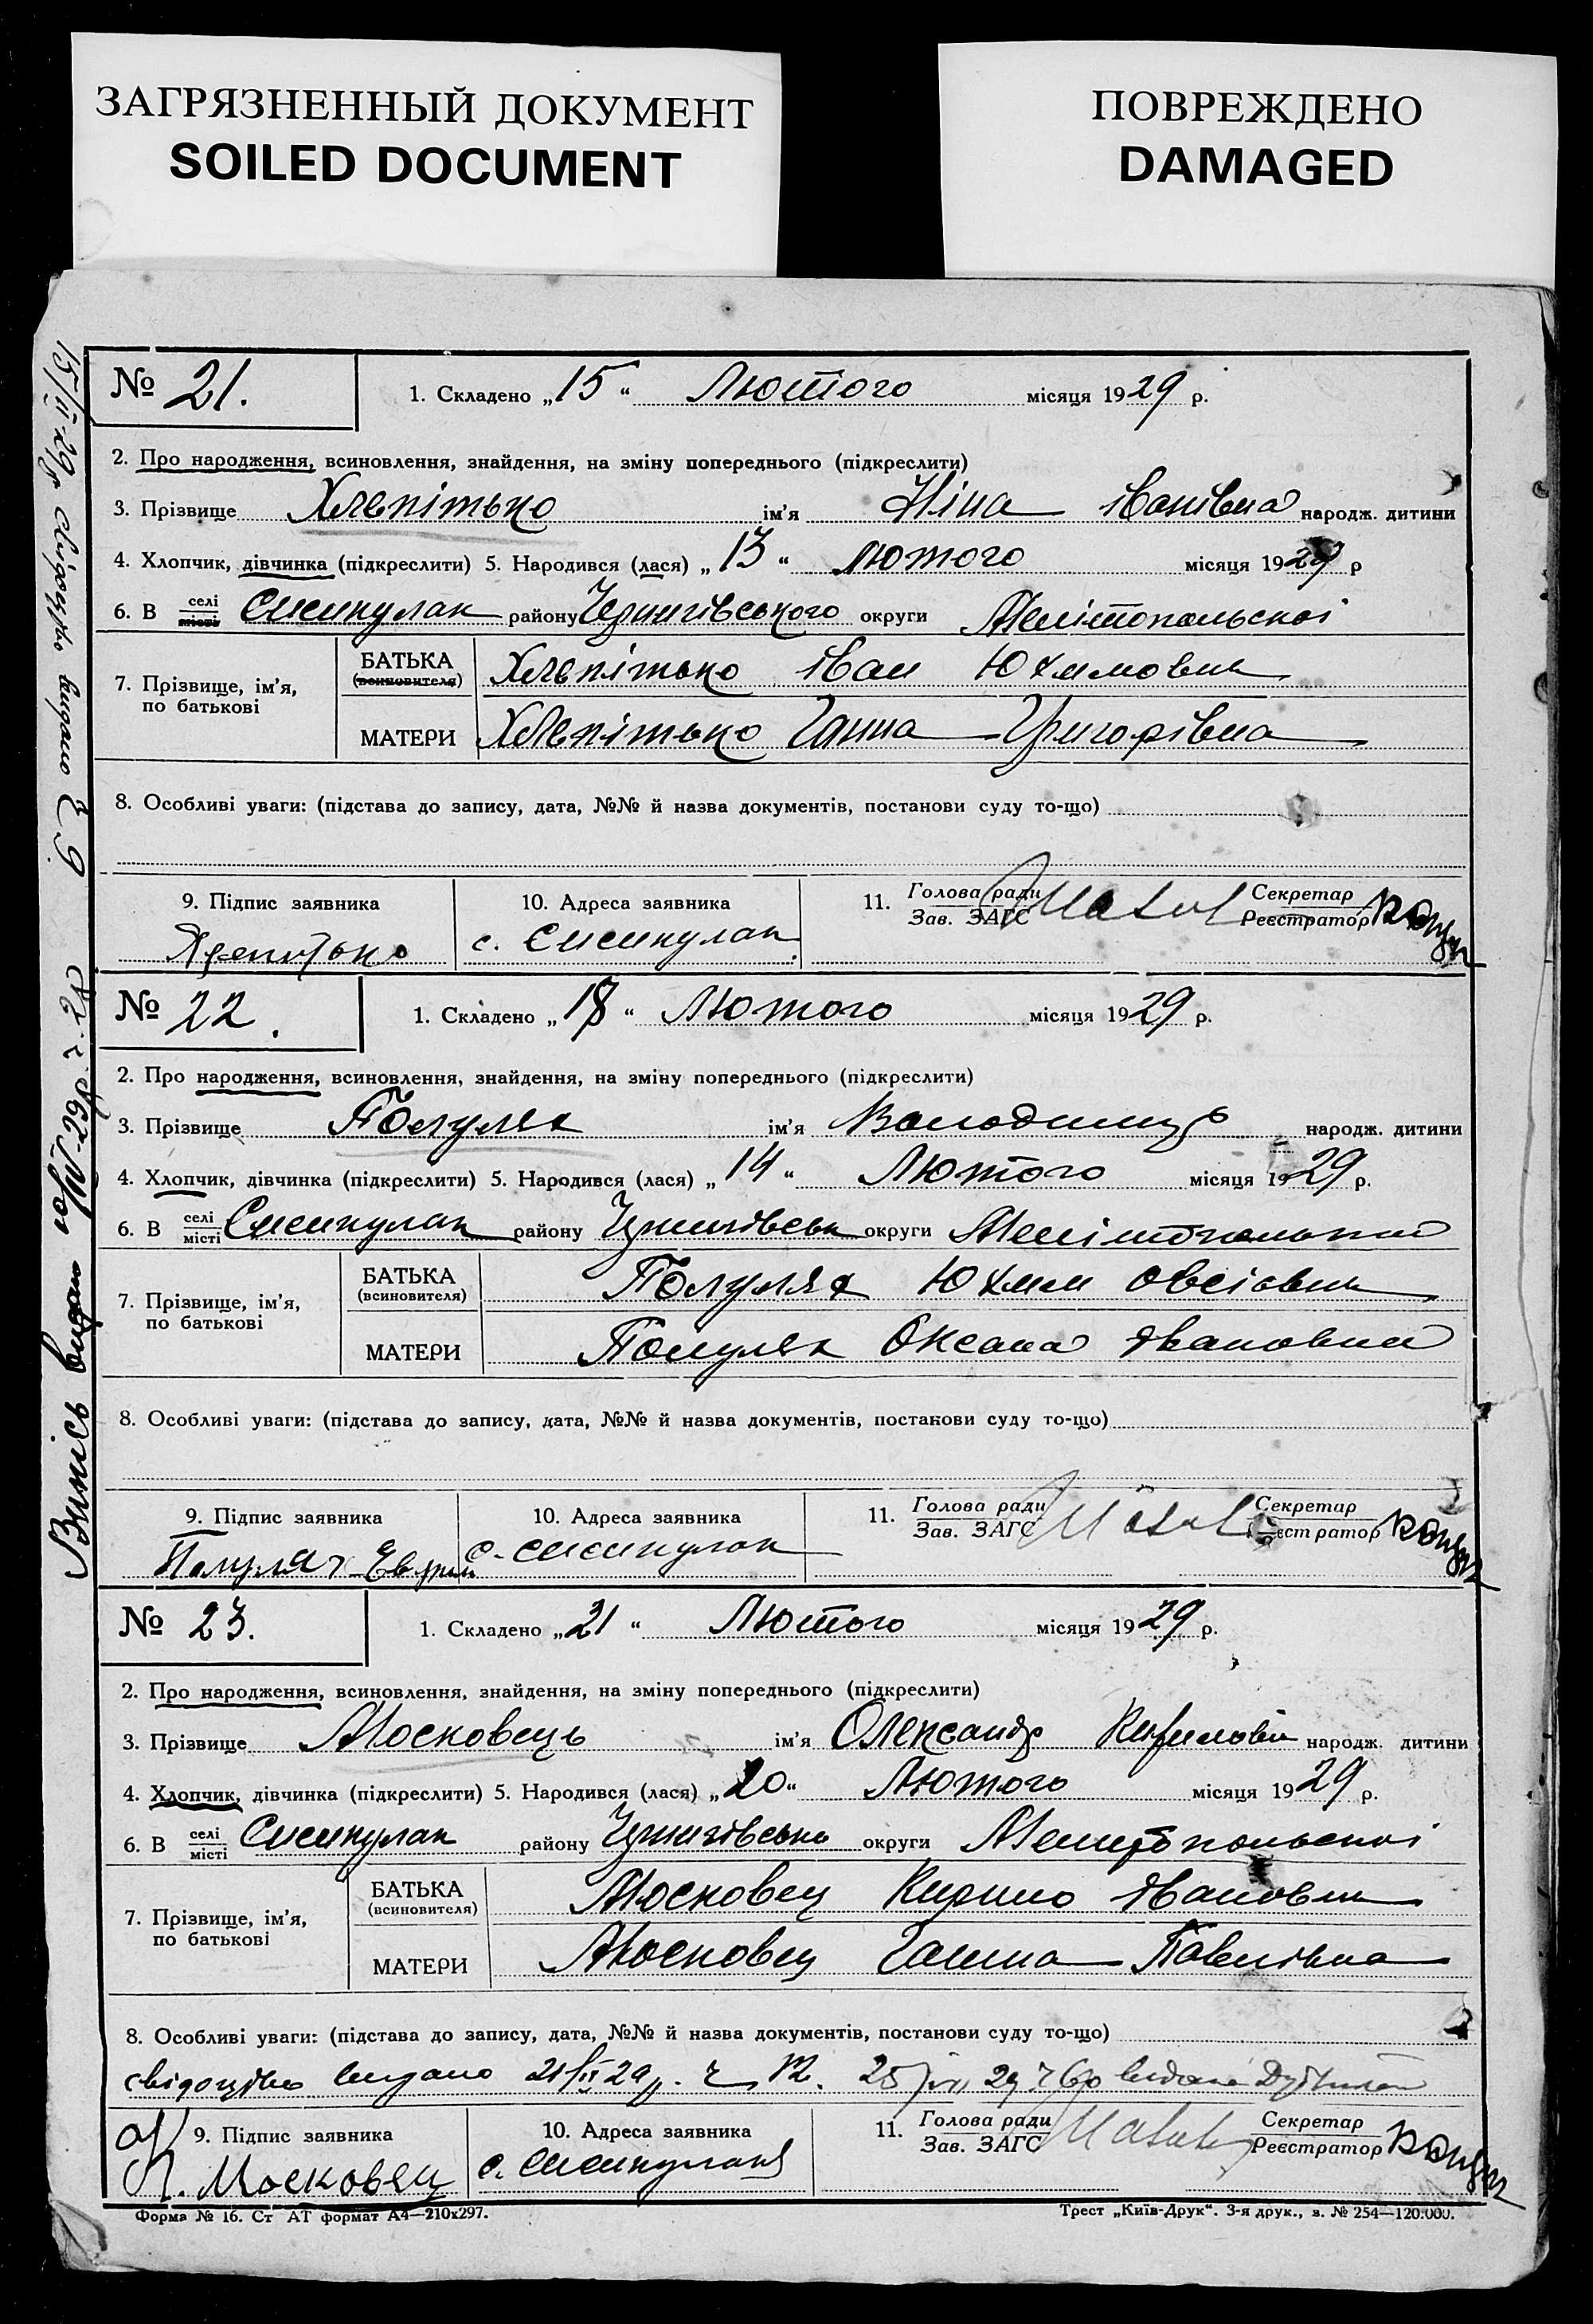 ЗАГРЯЗНЕННЫЙ ДОКУМЕНТ
SOILED DOCUMENT
ПОВРЕЖДЕНО
DAMAGED
№ 21. 1. Складено „15“ Лютого місяця 1929 р.
2. Про народження, всиновлення, знайдення, на зміну попереднього (підкреслити)
3. Прізвище Хлепітько ім'я Ніна Іванівна народж. дитини
4. Хлопчик, дівчинка (підкреслити) 5. Народився (лася) „13“ лютого місяця 1929 р
6. В селі місті району Чернигівського округи Мелітопольскоі
7. Прізвище, ім'я, по батькові
БАТЬКА (всиновителя) Хлепітько Іван Юхимович
МАТЕРИ Хлепітько Ганна Григорівна
8. Особливі уваги: (підстава до запису, дата, №№ й назва документів, постанови суду то-що)
9. Підпис заявника 10. Адреса заявника 11. Голова ради Зав. ЗАГС Секретар Реєстратор
с.
№ 22. 1. Складено „18“ Лютого місяця 1929 р.
2. Про народження, всиновлення, знайдення, на зміну попереднього (підкреслити)
3. Прізвище Полулях ім'я Володимир народж. дитини
4. Хлопчик, дівчинка (підкреслити) 5. Народився (лася) „14“ Лютого місяця 1929 р.
6. В селі місті району округи
7. Прізвище, ім'я, по батькові
БАТЬКА (всиновителя) Полулях Юхим Овсієвич
МАТЕРИ Полулях Оксана Івановна
8. Особливі уваги: (підстава до запису, дата, №№ й назва документів, постанови суду то-що)
9. Підпис заявника 10. Адреса заявника 11. Голова ради Зав. ЗАГС Секретар Реєстратор
Полулях
№ 23. 1. Складено „21“ Лютого місяця 1929 р.
2. Про народження, всиновлення, знайдення, на зміну попереднього (підкреслити)
3. Прізвище Московець ім'я Олександр Кирилович народж. дитини
4. Хлопчик, дівчинка (підкреслити) 5. Народився (лася) „20“ Лютого місяця 1929 р.
6. В селі місті району округи Мелитопольскоі
7. Прізвище, ім'я, по батькові
БАТЬКА (всиновителя) Московец Кирило Іванович
МАТЕРИ Московец Ганна Павлівна
8. Особливі уваги: (підстава до запису, дата, №№ й назва документів, постанови суду то-що)
видано
9. Підпис заявника 10. Адреса заявника 11. Голова ради Зав. ЗАГС Секретар Реєстратор
Московец с.
Форма № 16. Ст АТ формат А4—210х297. Трест „Київ-Друк“. 3-я друк., з. № 254—120.000.